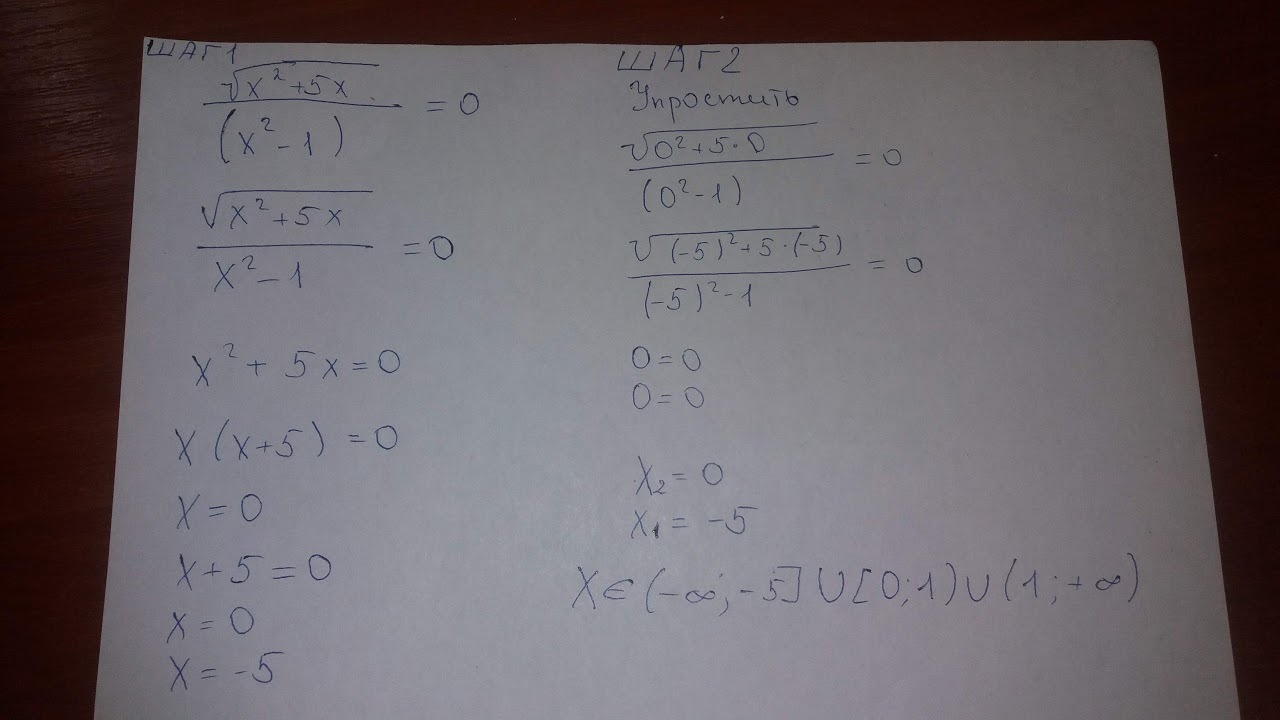 ШАГ1
√x²+5x / (x²-1) = 0
√x²+5x / x²-1 = 0
x²+5x=0
x(x+5)=0
x=0
x+5=0
x=0
x=-5
ШАГ2
Упростить
√0²+5·0 / (0²-1) = 0
√(-5)²+5·(-5) / (-5)²-1 = 0
0=0
0=0
x₂=0
x₁=-5
X∈(-∞;-5]∪[0;1)∪(1;+∞)